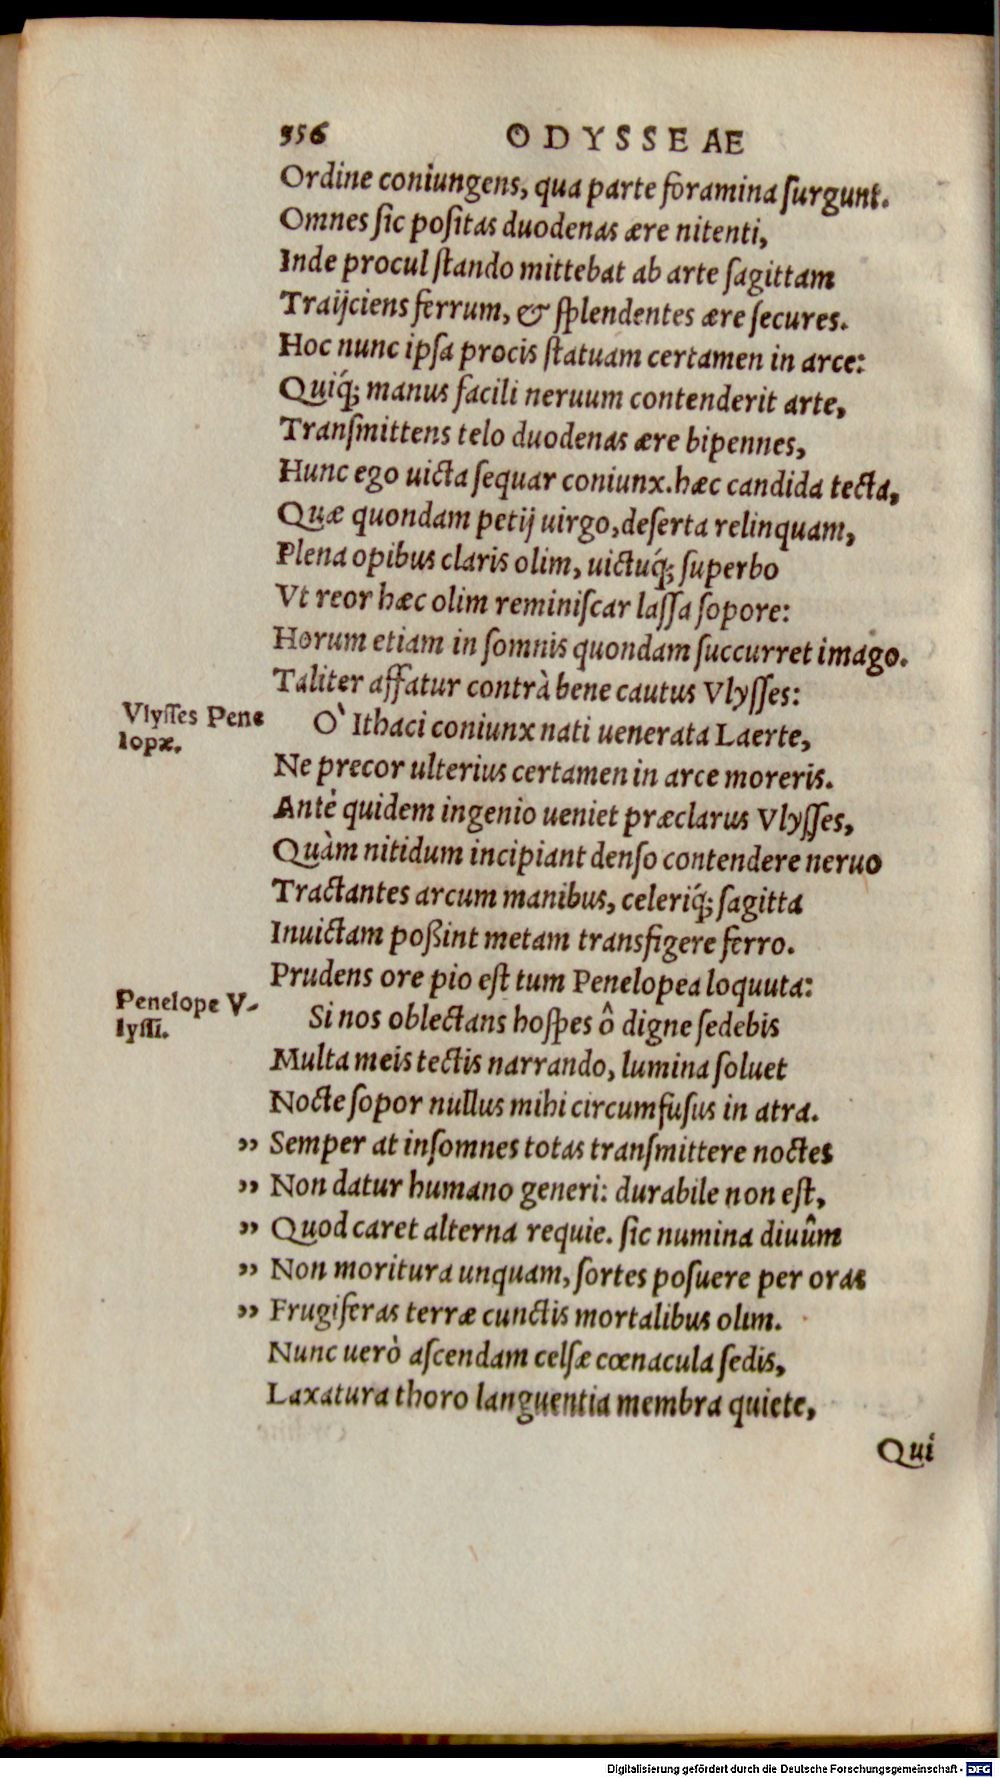 356 ODYSSEAE
Ordine coniungens, qua parte foramina ſurgunt.
Omnes ſic poſitas duodenas ære nitenti,
Inde procul ſtando mittebat ab arte ſagittam
Traijciens ferrum, & ſplendentes ære ſecures.
Hoc nunc ipſa procis ſtatuam certamen in arce:
Quiq́; manus facili neruum contenderit arte,
Tranſmittens telo duodenas ære bipennes,
Hunc ego uicta ſequar coniunx. hæc candida tecta,
Quæ quondam petij uirgo, deſerta relinquam,
Plena opibus claris olim, uictuq́; ſuperbo
Vt reor hæc olim reminiſcar laſſa ſopore:
Horum etiam in ſomnis quondam ſuccurret imago.
Taliter affatur contrà bene cautus Vlyſſes:
Vlyſſes Pene
lopæ.
Ò Ithaci coniunx nati uenerata Laerte,
Ne precor ulterius certamen in arce moreris.
Antè quidem ingenio ueniet præclarus Vlyſſes,
Quàm nitidum incipiant denſo contendere neruo
Tractantes arcum manibus, celeriq́; ſagitta
Inuictam poßint metam transfigere ferro.
Prudens ore pio eſt tum Penelopea loquuta:
Penelope V-
lyſſi.
Si nos oblectans hoſpes ô digne ſedebis
Multa meis tectis narrando, lumina ſoluet
Nocte ſopor nullus mihi circumfuſus in atra.
„ Semper at inſomnes totas tranſmittere noctes
„ Non datur humano generi: durabile non eſt,
„ Quod caret alterna requie. ſic numina diuûm
„ Non moritura unquam, ſortes poſuere per oras
„ Frugiferas terræ cunctis mortalibus olim.
Nunc uerò aſcendam celſæ cœnacula ſedis,
Laxatura thoro languentia membra quiete,
Qui
Digitalisierung gefördert durch die Deutsche Forschungsgemeinschaft - DFG